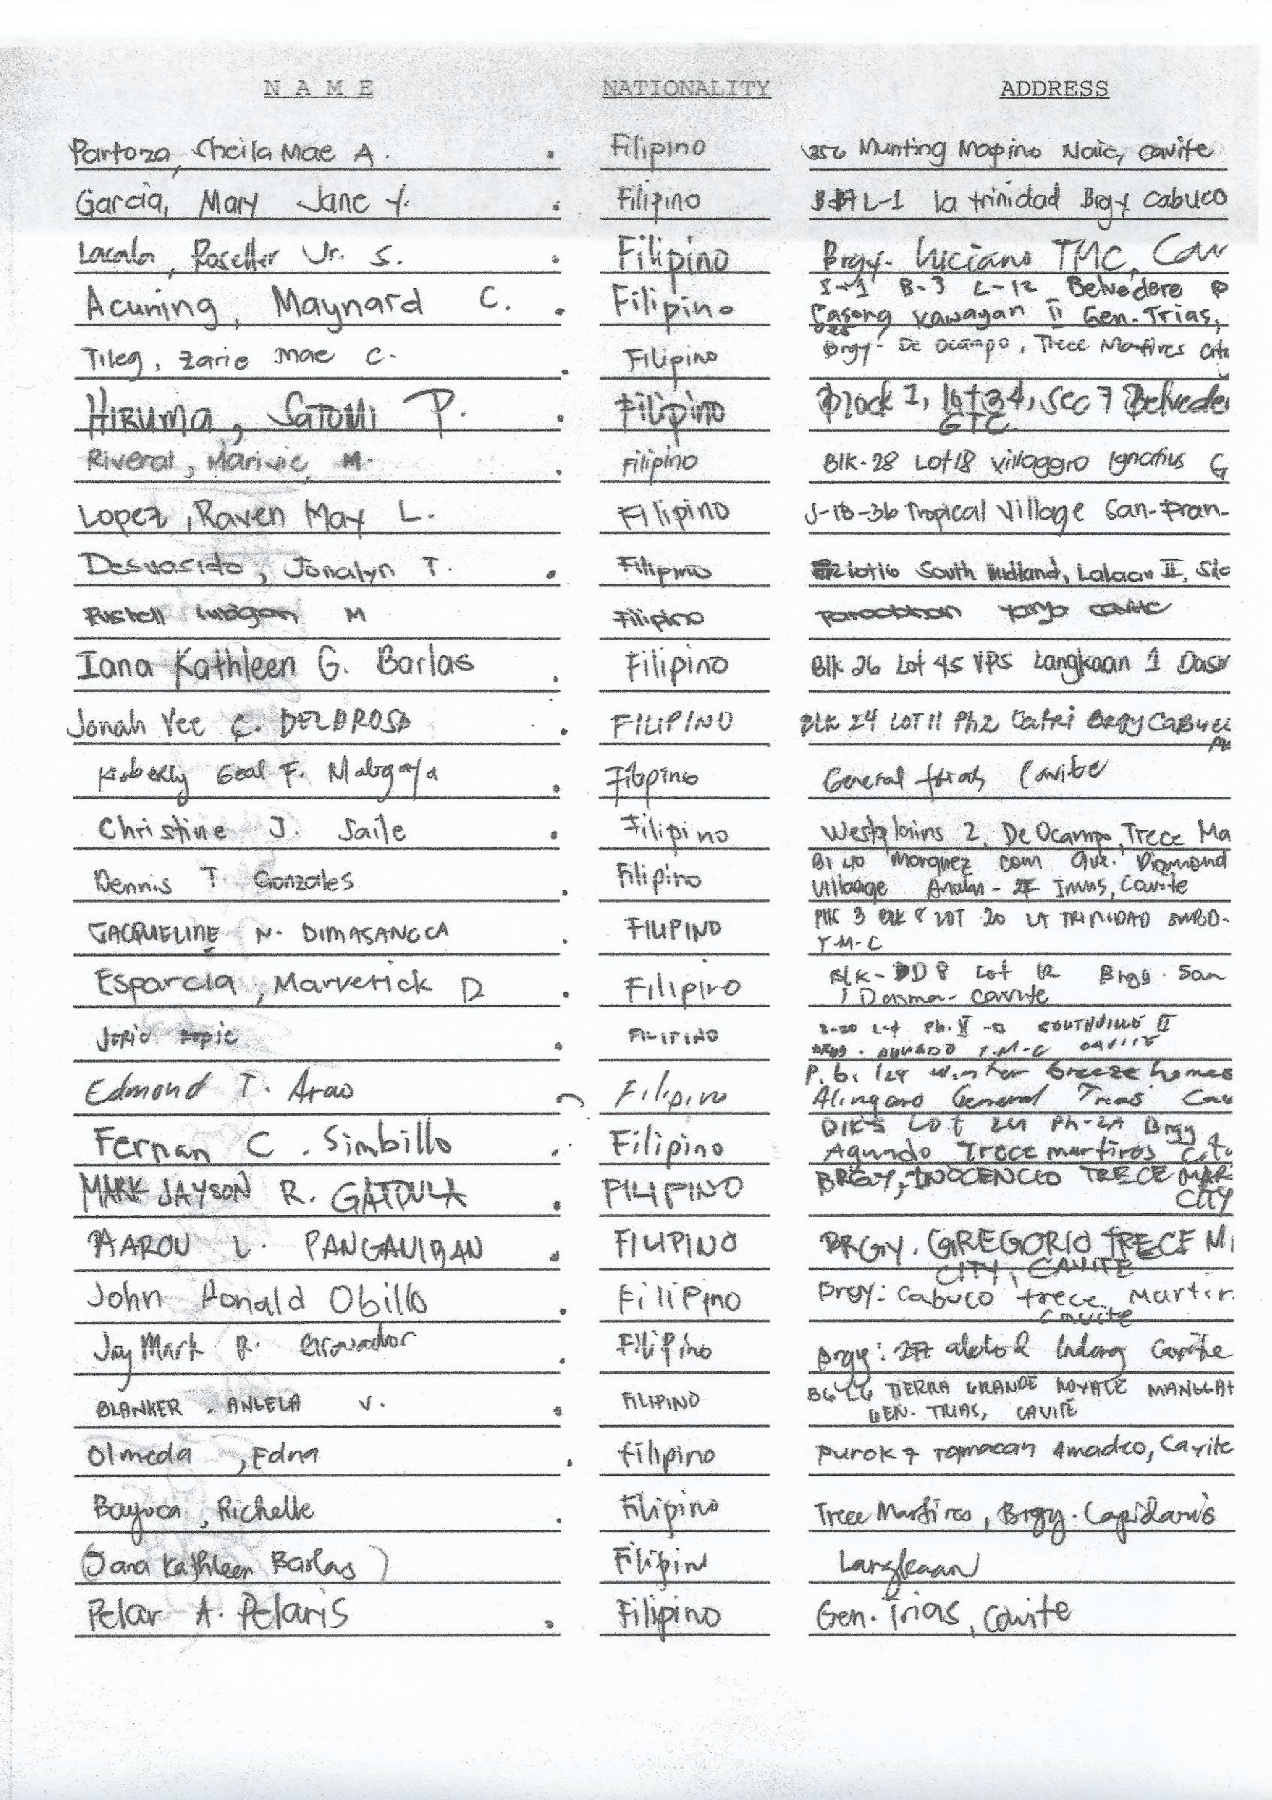 NAME NATIONALITY ADDRESS
Partoza, Sheila Mae A. Filipino 256 Munting Mapino Naic, Cavite
Garcia, Mary Jane Y. Filipino L-1 la trinidad Brgy Cabuco
Lacala, Roseller Jr. S. Filipino Brgy. Luciano TMC, Cav
Acuning, Maynard C. Filipino S-1 B-3 L-12 Belvedere
Pasong Kawayan II Gen. Trias,
Tileg, Zarie Mae C. Filipino Brgy- De Ocampo, Trece Martires Cit
HIRUMA, SATOMI P. Filipino Block 1, lot 34, sec 7 Belvede
GTC
Rivera, Marivic, M. Filipino Blk-28 Lot 18 Villaggio Ignatius G
Lopez, Raven May L. Filipino J-18-36 Tropical Village San-Fran-
Desuasido, Jonalyn T. Filipino lot 16 South midland, Lalaan II, Sil
M Filipino cavite
Iana Kathleen G. Barlas Filipino Blk 26 Lot 45 VPS Langkaan 1 Dasm
Jonah Vee C. DELAROSA FILIPINO BLK 24 LOT 11 Ph2 Catri Brgy Cabuc
F. Filipino General trias Cavite
Christine J. Saile Filipino Westplains 2, De Ocampo, Trece Ma
Dennis T Gonzales Filipino Bl 40 Marquez corn Ave. Diamond
Village Anabu - 2F Imus, Cavite
JACQUELINE N. DIMASANGCA FILIPINO PH 3 BLK 8 LOT 20 LA TRINIDAD
T-M-C
Esparcia, Marverick D Filipino Blk- DD8 Lot 12 Brgy. San
Dasma- cavite
FILIPINO Ph. SOUTHVILLE II
T.M-C CAVITE
Edmond T. Arao Filipino P.6. 124 Winter Breeze homes
Alingaro General Trias Cav
Fernan C. Simbillo Filipino Blk5 Lot 24 Ph-2A Brgy
Aguado Trece martires City
MARK JAYSON R. GATDULA FILIPINO BRGY, INOCENCIO TRECE MAR
CITY
AARON L. PANGANIBAN FILIPINO BRGY. GREGORIO TRECE M
CITY, CAVITE
John Ronald Obillo Filipino Brgy: Cabuco trece Martir
Cavite
Jay Mark R. Filipino Brgy: Indang Cavite
BLANKER, ANGELA V. FILIPINO B6 L6 TIERRA GRANDE ROYALE MANGGAH
GEN. TRIAS, CAVITE
Olmeda, Edna filipino Purok 7 Tamacan Amadeo, Cavite
Bayuca, Richelle Filipino Trece Martires, Brgy. Capidanis
(Jana Kathleen Barlas) Filipin Langkaan
Pelar A. Pelaris Filipino Gen. Trias, Cavite